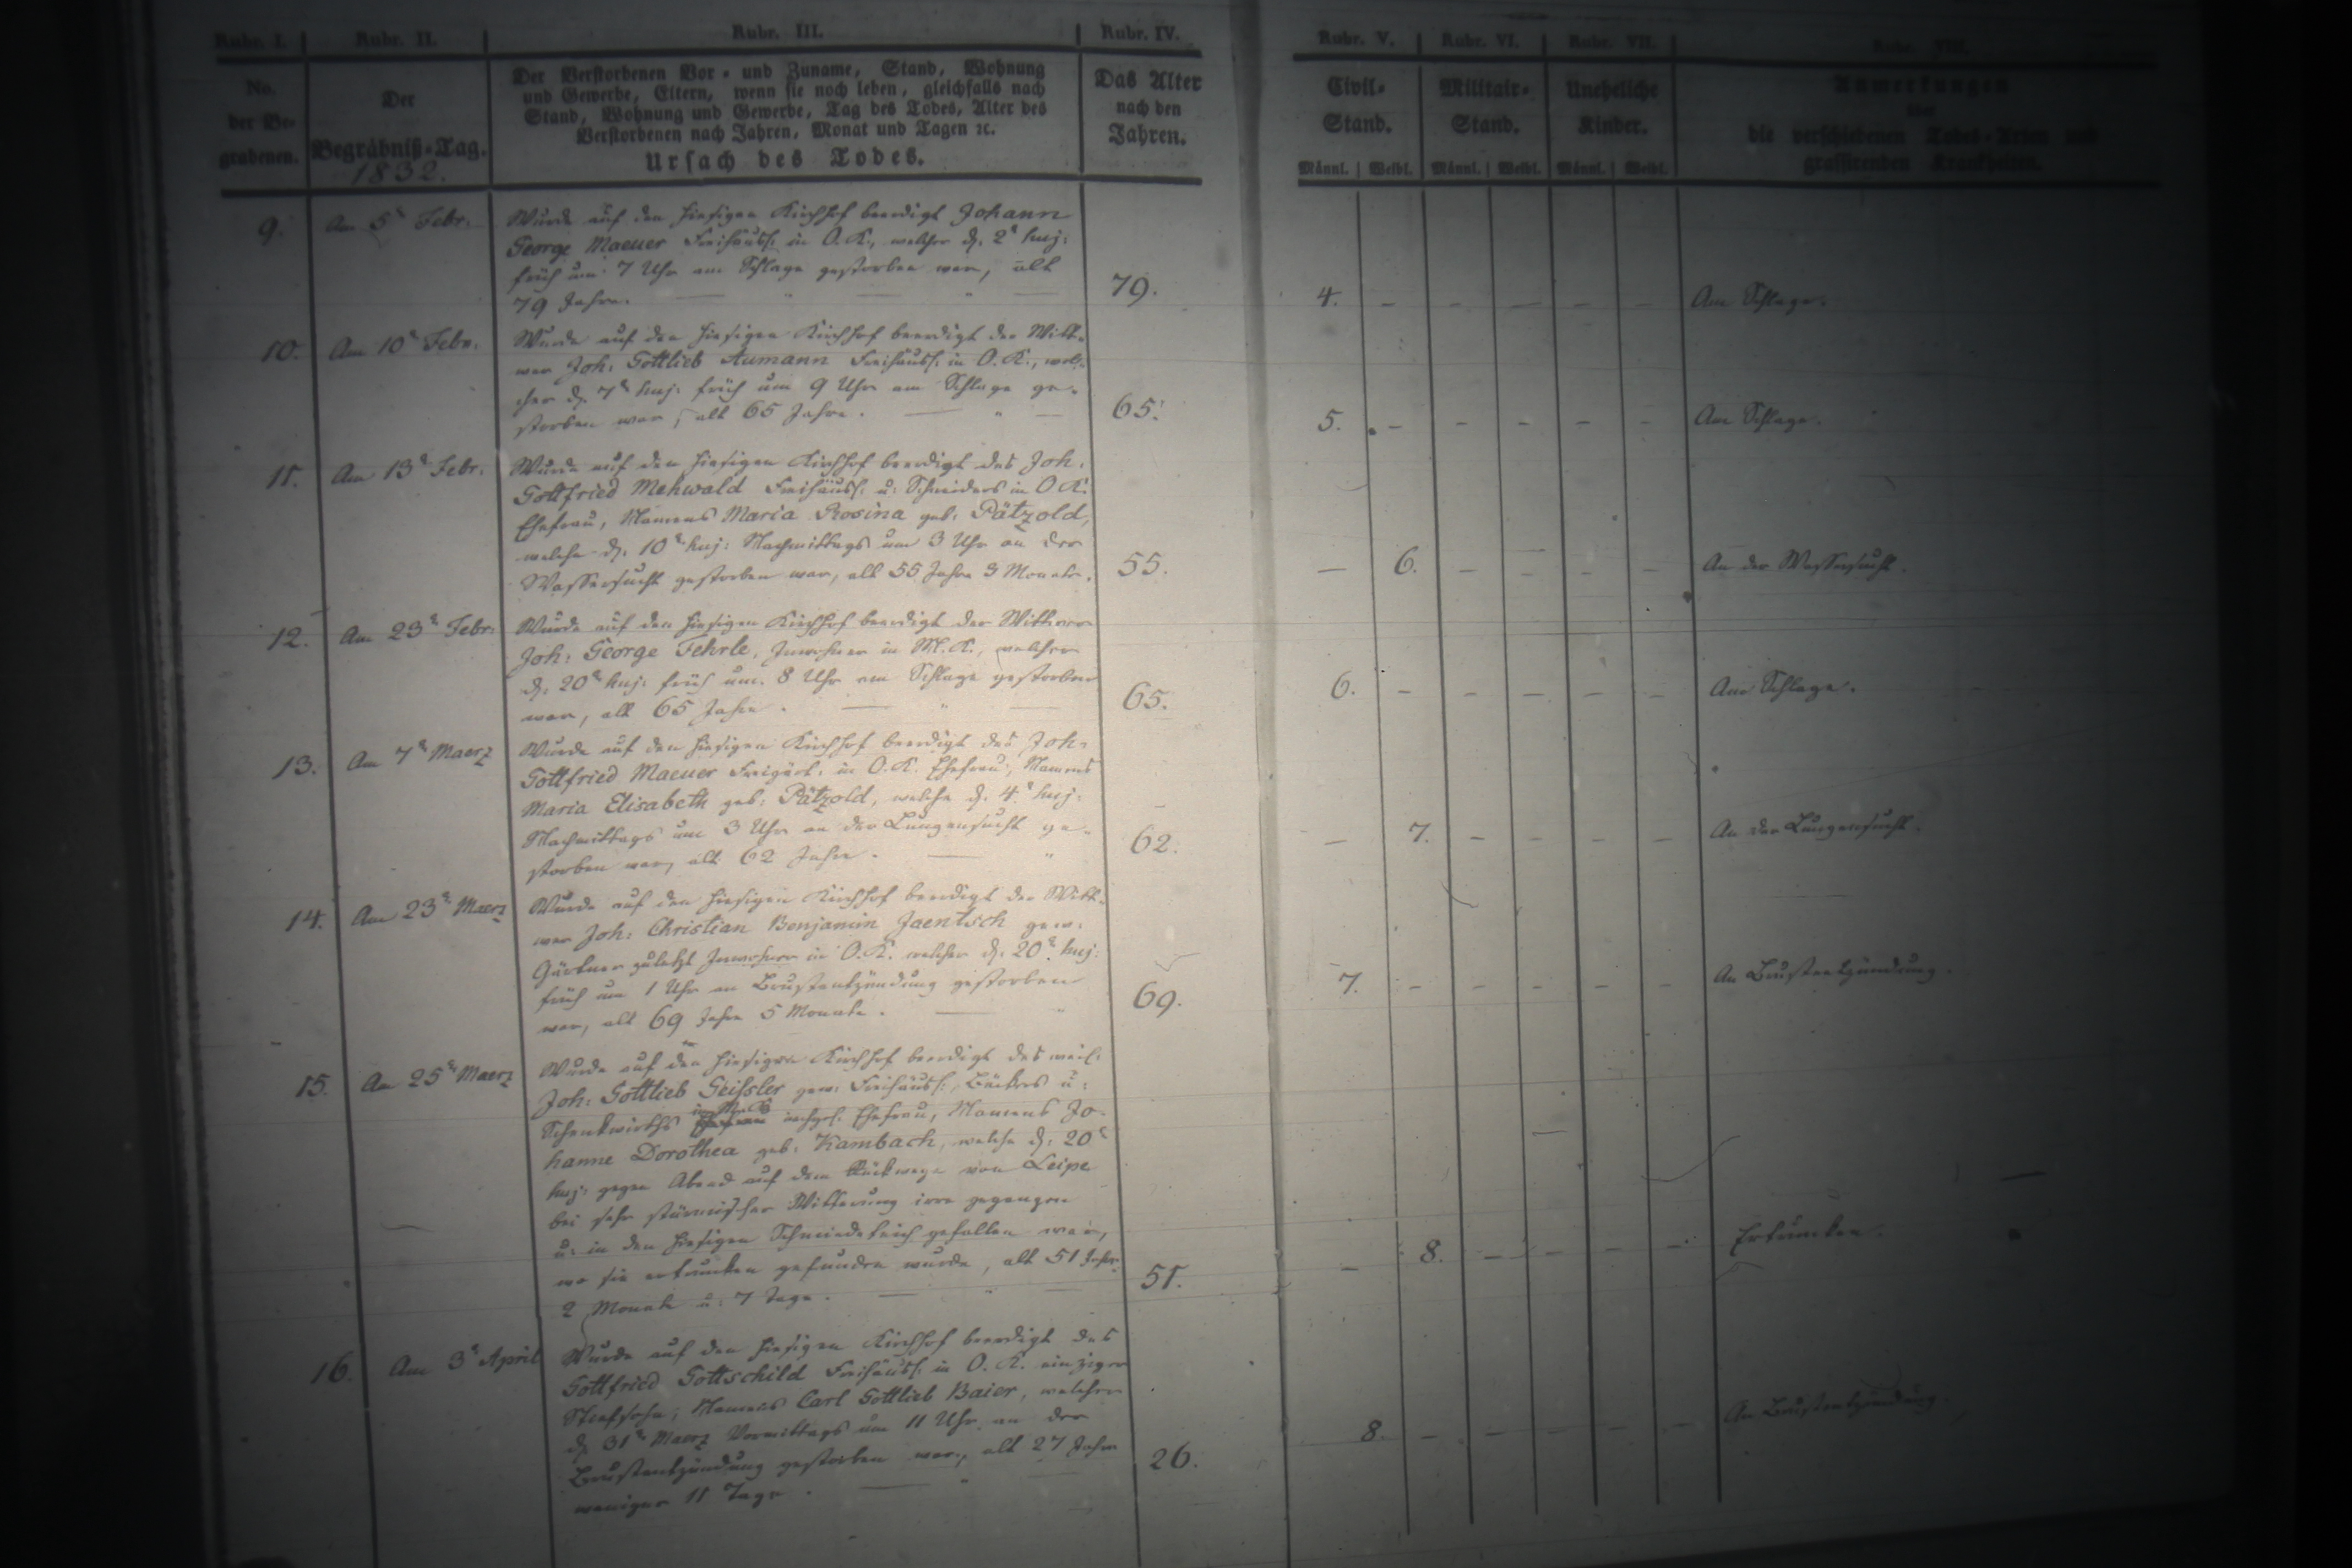 Rubr. I.
Rubr. II.
Rubr. III.
Rubr. IV.
Rubr. V.
Rubr. VI.
Rubr. VII.
Rubr. VIII.
No.
der Be-
grabenen.
Der
Begräbniß-Tag.
1832.
Der Verstorbenen Vor- und Zuname, Stand, Wohnung
und Gewerbe, Eltern, wenn sie noch leben, gleichfalls nach
Stand, Wohnung und Gewerbe, Tag des Todes, Alter des
Verstorbenen nach Jahren, Monat und Tagen ꝛc.
Ursach des Todes.
Das Alter
nach den
Jahren.
Civil-
Stand.
Männl. Weibl.
Militair-
Stand.
Männl. Weibl.
Uneheliche
Kinder.
Männl. Weibl.
Anmerkungen
über
die verschiedenen Todes-Arten und
grassirenden Krankheiten.
9. Am 5t Febr.
Wurde auf den hiesigen Kirchhof beerdigt Johann
George Maeuer Freihäusl. in O. K., welcher d. 2t huj:
früh um 7 Uhr am Schlage gestorben war, alt
79 Jahre. 79. 4. - - - - - Am Schlage.
10. Am 10t Febr.
Wurde auf den hiesigen Kirchhof beerdigt der Witt-
wer Joh: Gottlieb Aumann Freihäusl. in O. K., wel-
cher d. 7t huj: früh um 9 Uhr am Schlage ge-
storben war, alt 65 Jahre. 65. 5. - - - - - Am Schlage.
11. Am 13t Febr:
Wurde auf den hiesigen Kirchhof beerdigt des Joh:
Gottfried Mehwald Freihäusl. u: Schneiders in O K.
Ehefrau, Namens Maria Rosina geb: Pätzold,
welche d. 10t huj: Nachmittags um 3 Uhr an der
Wassersucht gestorben war, alt 55 Jahre 3 Monate. 55. - 6. - - - - An der Wassersucht.
12. Am 23t Febr:
Wurde auf den hiesigen Kirchhof beerdigt der Wittwer
Joh: George Fehrle, Inwohner in M. K., welcher
d. 20t huj: früh um 8 Uhr am Schlage gestorben
war, alt 65 Jahre. 65. 6. - - - - - Am Schlage.
13. Am 7t Maerz
Wurde auf den hiesigen Kirchhof beerdigt des Joh:
Gottfried Maeuer Freigärt. in O. K. Ehefrau, Namens
Maria Elisabeth geb: Pätzold, welche d. 4t huj:
Nachmittags um 3 Uhr an der Lungensucht ge-
storben war, alt 62 Jahre. 62. - 7. - - - - An der Lungensucht.
14. Am 23t Maerz
Wurde auf den hiesigen Kirchhof beerdigt der Witt-
wer Joh: Christian Benjamin Jaentsch gew:
Gärtner zuletzt Inwohner in O. K. welcher d. 20t huj:
früh um 1 Uhr an Brustentzündung gestorben
war, alt 69 Jahre 5 Monate. 69. 7. - - - - - An Brustentzündung.
15. Am 25t Maerz
Wurde auf den hiesigen Kirchhof beerdigt des weil:
Joh: Gottlieb Geißler gew: Freihäusl., Bäckers u:
Schenkwirths Ehefrau, Namens Jo-
hanne Dorothea geb: Kambach, welche d. 20t
huj: gegen Abend auf dem Rückwege von Leipe
bei sehr stürmischer Witterung irre gegangen
u: in den hiesigen Schmiedeteich gefallen war,
wo sie ertrunken gefunden wurde, alt 51 Jahre
2 Monate u: 7 Tage. 51. - 8. - - - - Ertrunken.
16. Am 3t April
Wurde auf den hiesigen Kirchhof beerdigt des
Gottfried Gottschild Freihäusl. in O. K. einziger
Stiefsohn, Namens Carl Gottlieb Baier, welcher
d. 31t Maerz Vormittags um 11 Uhr an der
Brustentzündung gestorben war, alt 27 Jahre
weniger 11 Tage. 26. 8. - - - - - An Brustentzündung.